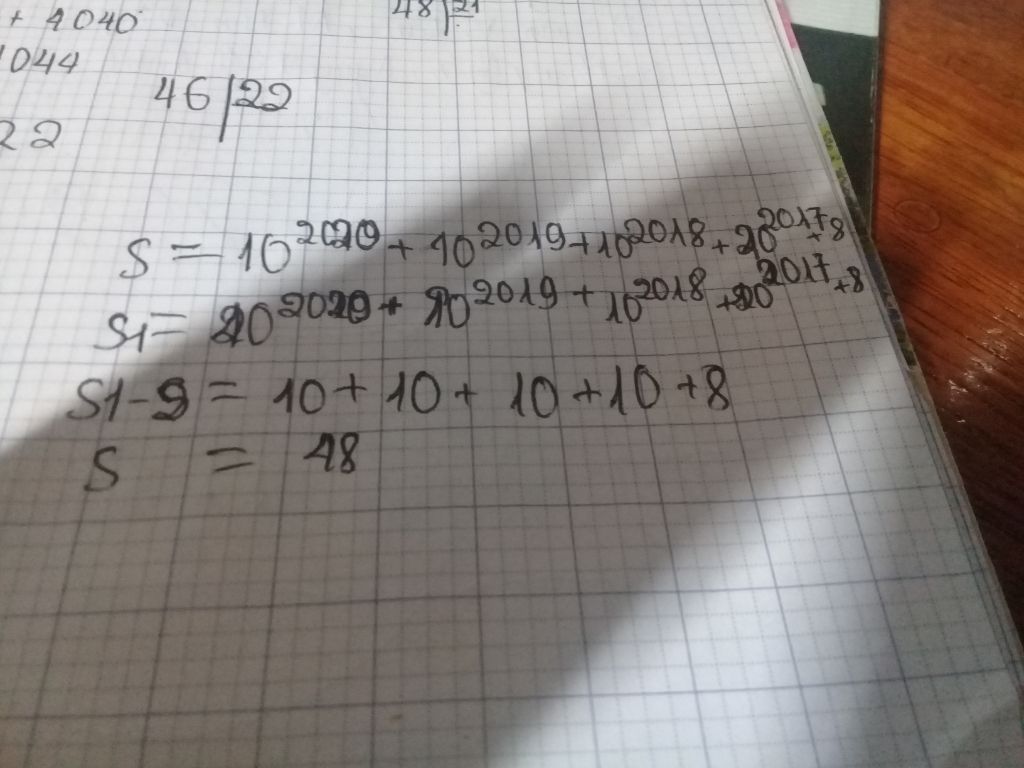 + 4040
48 | 21
1044
46 | 22
22
S = 10²⁰²⁰ + 10²⁰¹⁹ + 10²⁰¹⁸ + 10²⁰¹⁷ + 8
S1 = 10²⁰²⁰ + 10²⁰¹⁹ + 10²⁰¹⁸ + 10²⁰¹⁷ + 8
S1 - S = 10 + 10 + 10 + 10 + 8
S = 48